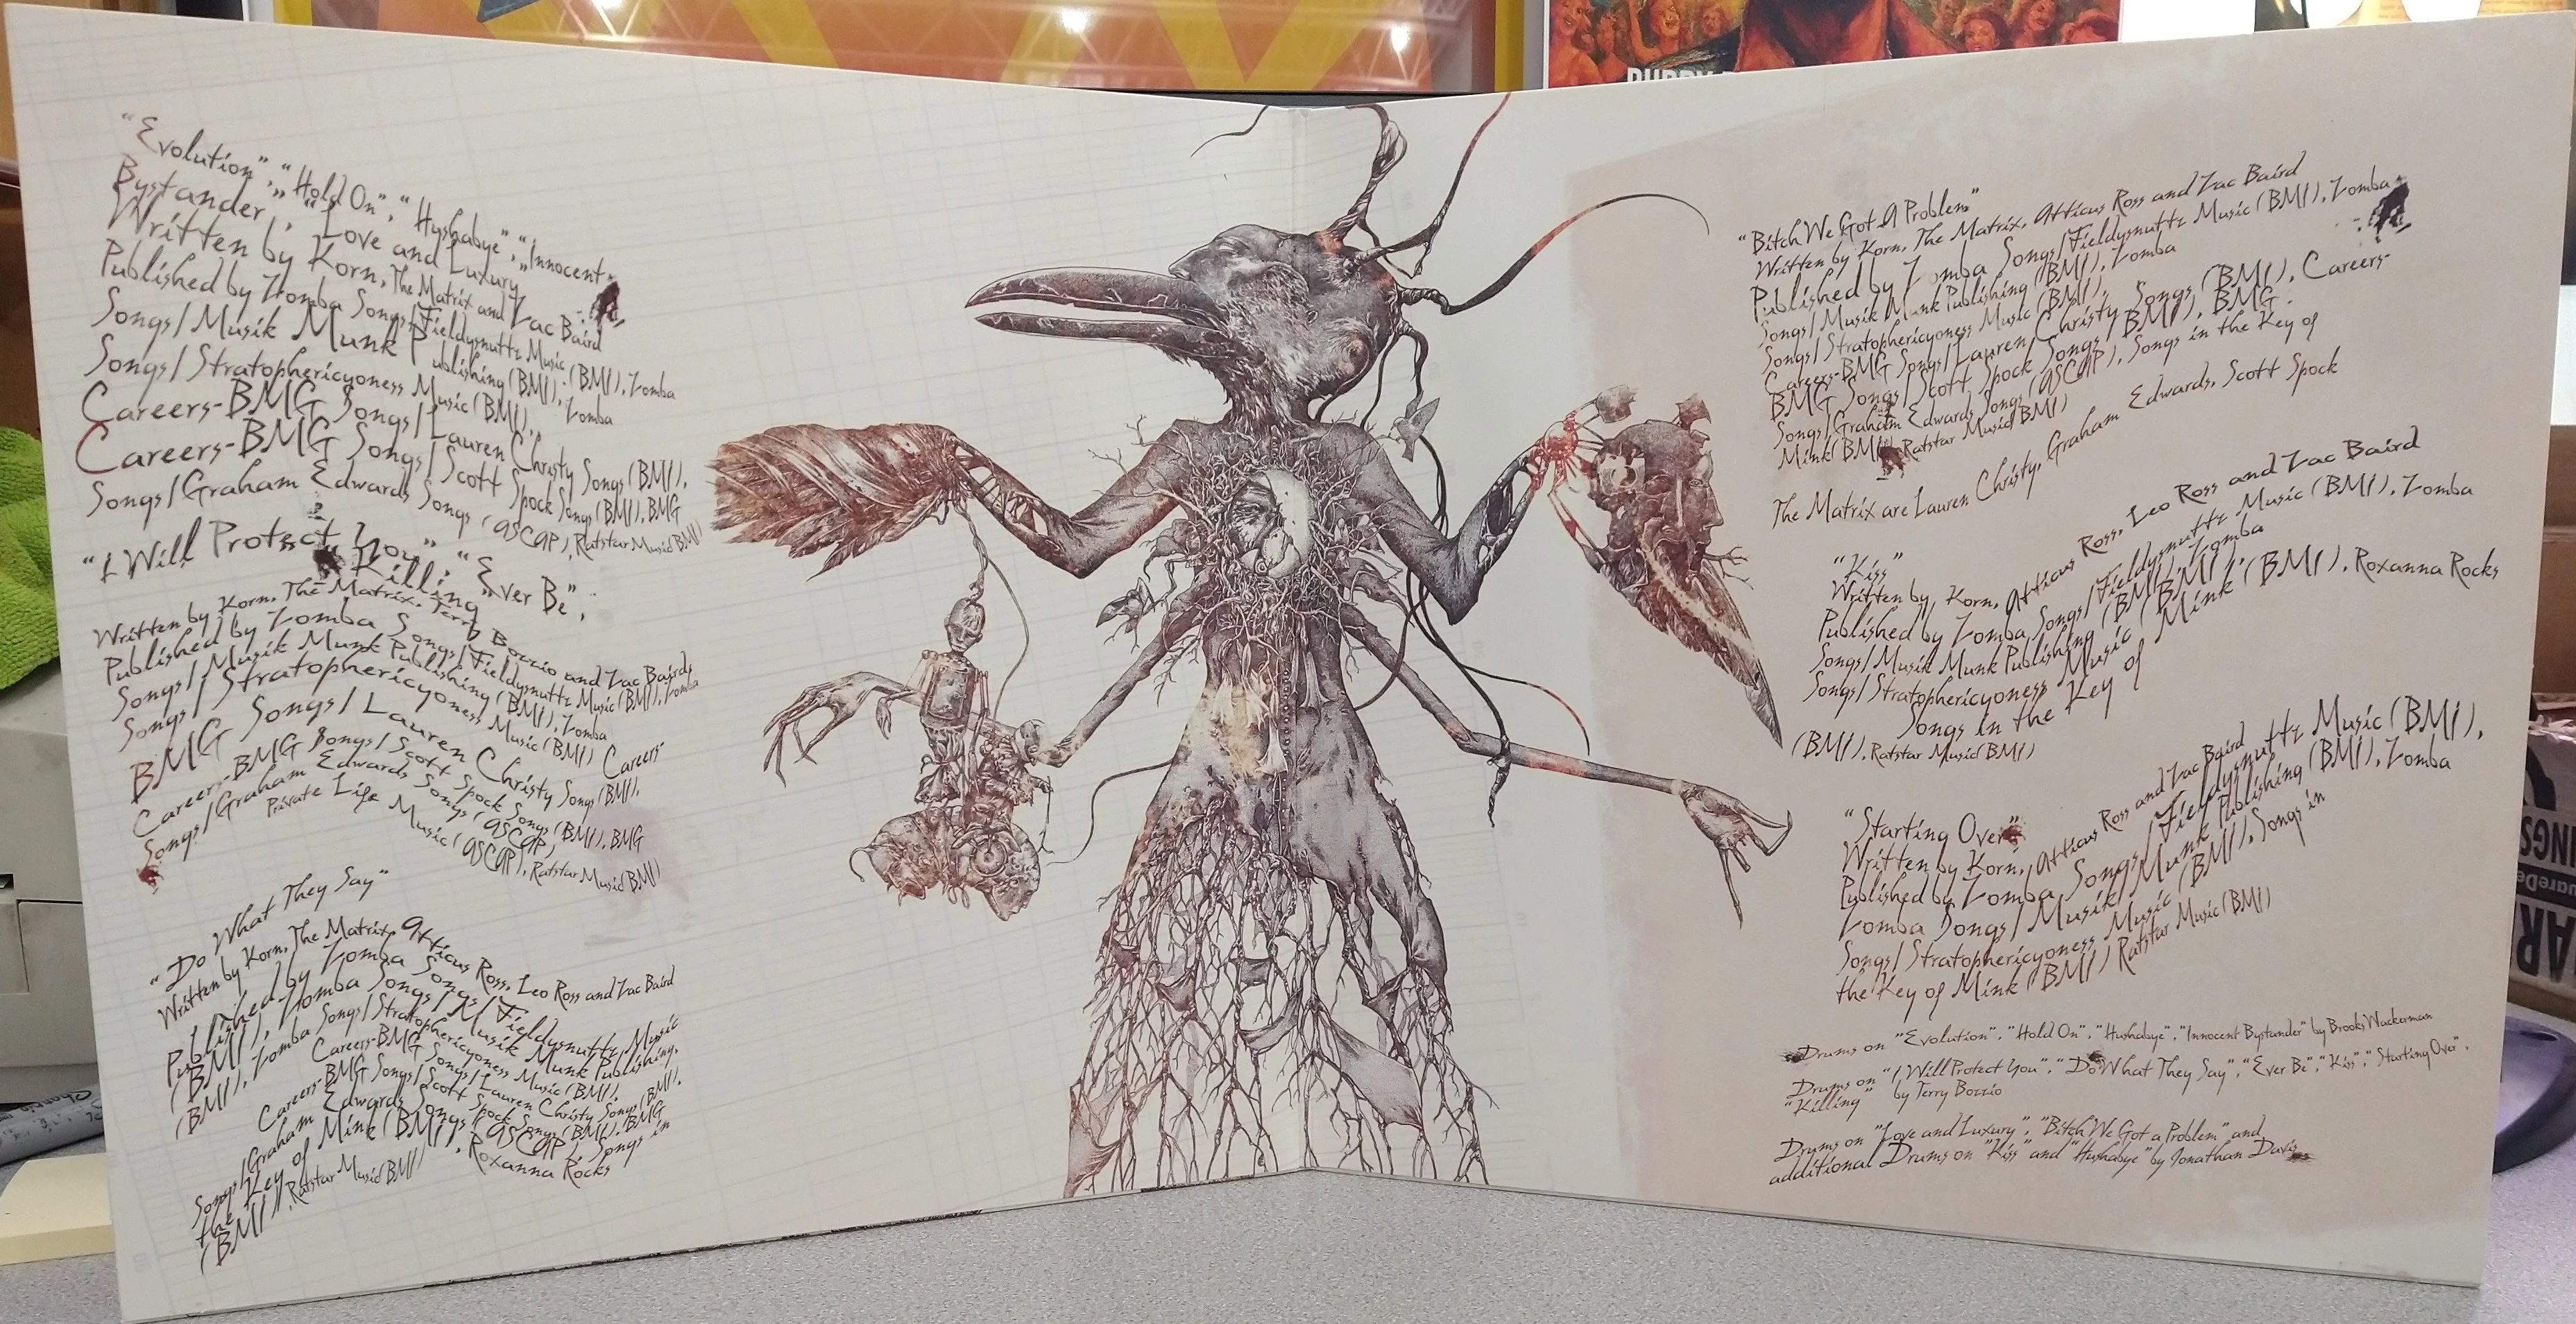 "Evolution", "Hold On", "Hushabye", "Innocent
Bystander", "Love and Luxury
Written by Korn, The Matrix and Zac Baird
Published by Zomba Songs/Fieldysnuttz Music (BMI), Zomba
Songs/Musik Munk Publishing (BMI), Zomba
Songs/Stratosphericyoness Music (BMI),
Careers-BMG Songs/Lauren Christy Songs (BMI),
Careers-BMG Songs/Scott Spock Songs (BMI), BMG
Songs/Graham Edwards Songs (ASCAP), Ratstar Music(BMI)
"I Will Protect You", "Ever Be",
"Killing"
Written by Korn, The Matrix, Terry Bozzio and Zac Baird
Published by Zomba Songs/Fieldysnuttz Music (BMI), Zomba
Songs/Musik Munk Publishing (BMI), Zomba
Songs/Stratosphericyoness Music (BMI) Careers-
BMG Songs/Lauren Christy Songs (BMI),
Careers-BMG Songs/Scott Spock Songs (BMI), BMG
Songs/Graham Edwards Songs (ASCAP)
Private Life Music (ASCAP), Ratstar Music(BMI)
"Do What They Say"
Written by Korn, The Matrix, Atticus Ross, Leo Ross and Zac Baird
Published by Zomba Songs/Fieldysnuttz Music
(BMI), Zomba Songs/Musik Munk Publishing,
(BMI), Zomba Songs/Stratosphericyoness Music (BMI),
Careers-BMG Songs/Lauren Christy Songs (BMI),
Careers-BMG Songs/Scott Spock Songs (BMI), BMG
Songs/Graham Edwards Songs (ASCAP), Songs in
the Key of Mink (BMI), Roxanna Rocks
(BMI), Ratstar Music(BMI)
"Bitch We Got A Problem"
Written by Korn, The Matrix, Atticus Ross and Zac Baird
Published by Zomba Songs/Fieldysnuttz Music (BMI), Zomba
Songs/Musik Munk Publishing (BMI), Zomba
Songs/Stratosphericyoness Music (BMI),
Careers-BMG Songs/Lauren Christy Songs (BMI), Careers-
BMG Songs/Scott Spock Songs (BMI), BMG
Songs/Graham Edwards Songs (ASCAP), Songs in the Key of
Mink (BMI), Ratstar Music(BMI)
The Matrix are Lauren Christy, Graham Edwards, Scott Spock
"Kiss"
Written by Korn, Atticus Ross, Leo Ross and Zac Baird
Published by Zomba Songs/Fieldysnuttz Music (BMI), Zomba
Songs/Musik Munk Publishing (BMI), Zomba
Songs/Stratosphericyoness Music (BMI),
Songs in the Key of Mink (BMI), Roxanna Rocks
(BMI), Ratstar Music(BMI)
"Starting Over"
Written by Korn, Atticus Ross and Zac Baird
Published by Zomba Songs/Fieldysnuttz Music (BMI),
Zomba Songs/Musik Munk Publishing (BMI), Zomba
Songs/Stratosphericyoness Music (BMI), Songs in
the Key of Mink (BMI) Ratstar Music(BMI)
Drums on "Evolution", "Hold On", "Hushabye", "Innocent Bystander" by Brooks Wackerman
Drums on "I Will Protect You", "Do What They Say", "Ever Be", "Kiss", "Starting Over",
"Killing" by Terry Bozzio
Drums on "Love and Luxury", "Bitch We Got a Problem" and
additional Drums on "Kiss" and "Hushabye" by Jonathan Davis